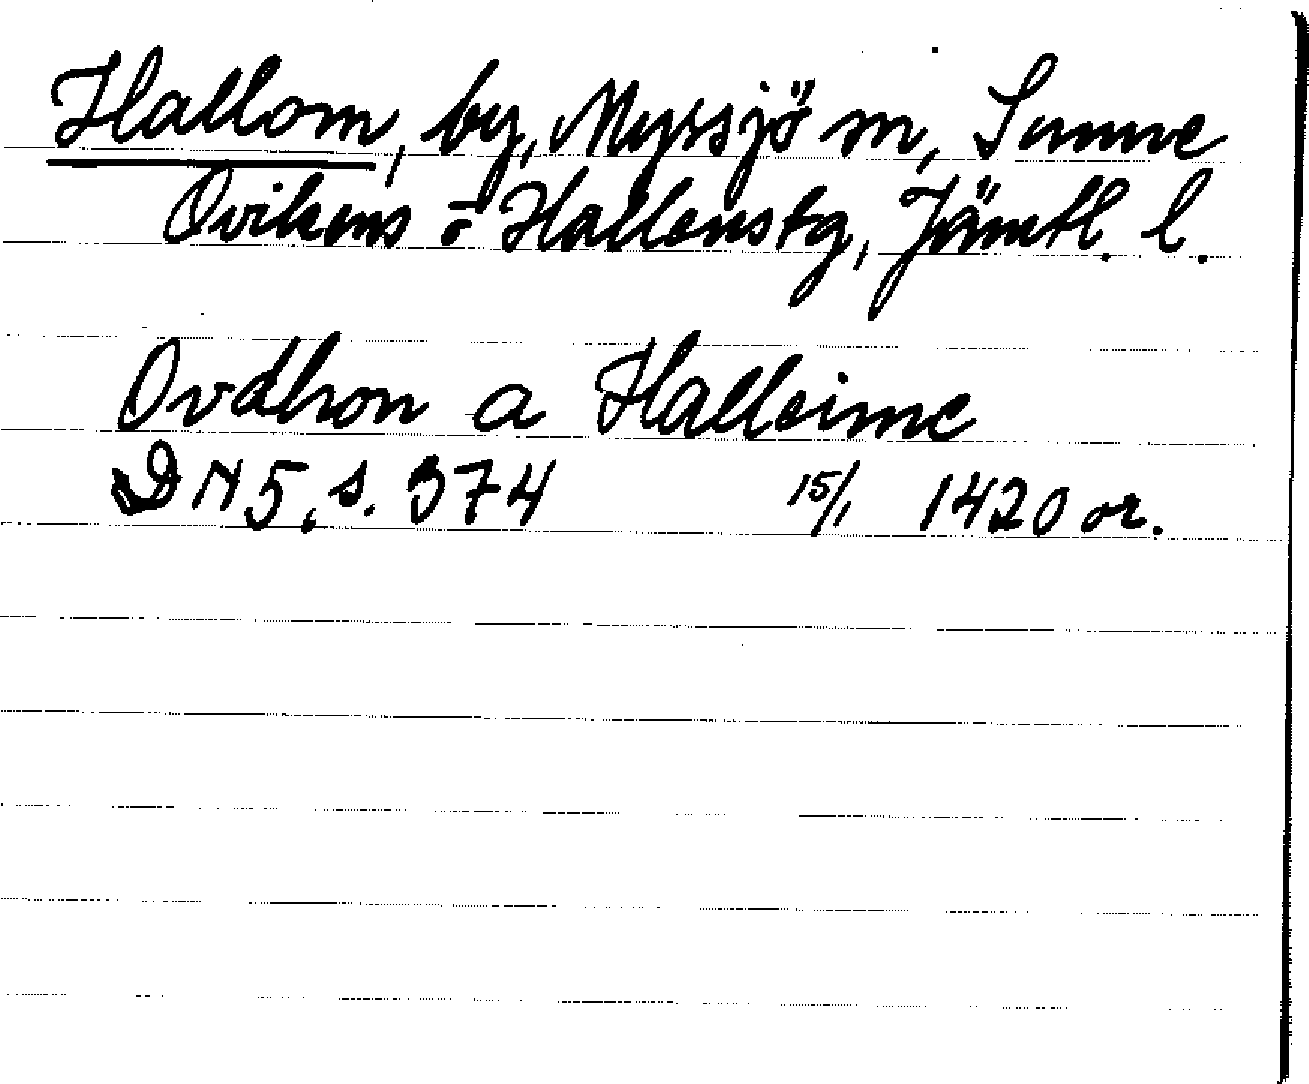 Hallom, by, Myssjö sn, Sunne
Ovikens o Hallenstg, Jämtl. l.
Ovdhon a Halleime
DN 5, s. 374 15/1 1420 or.